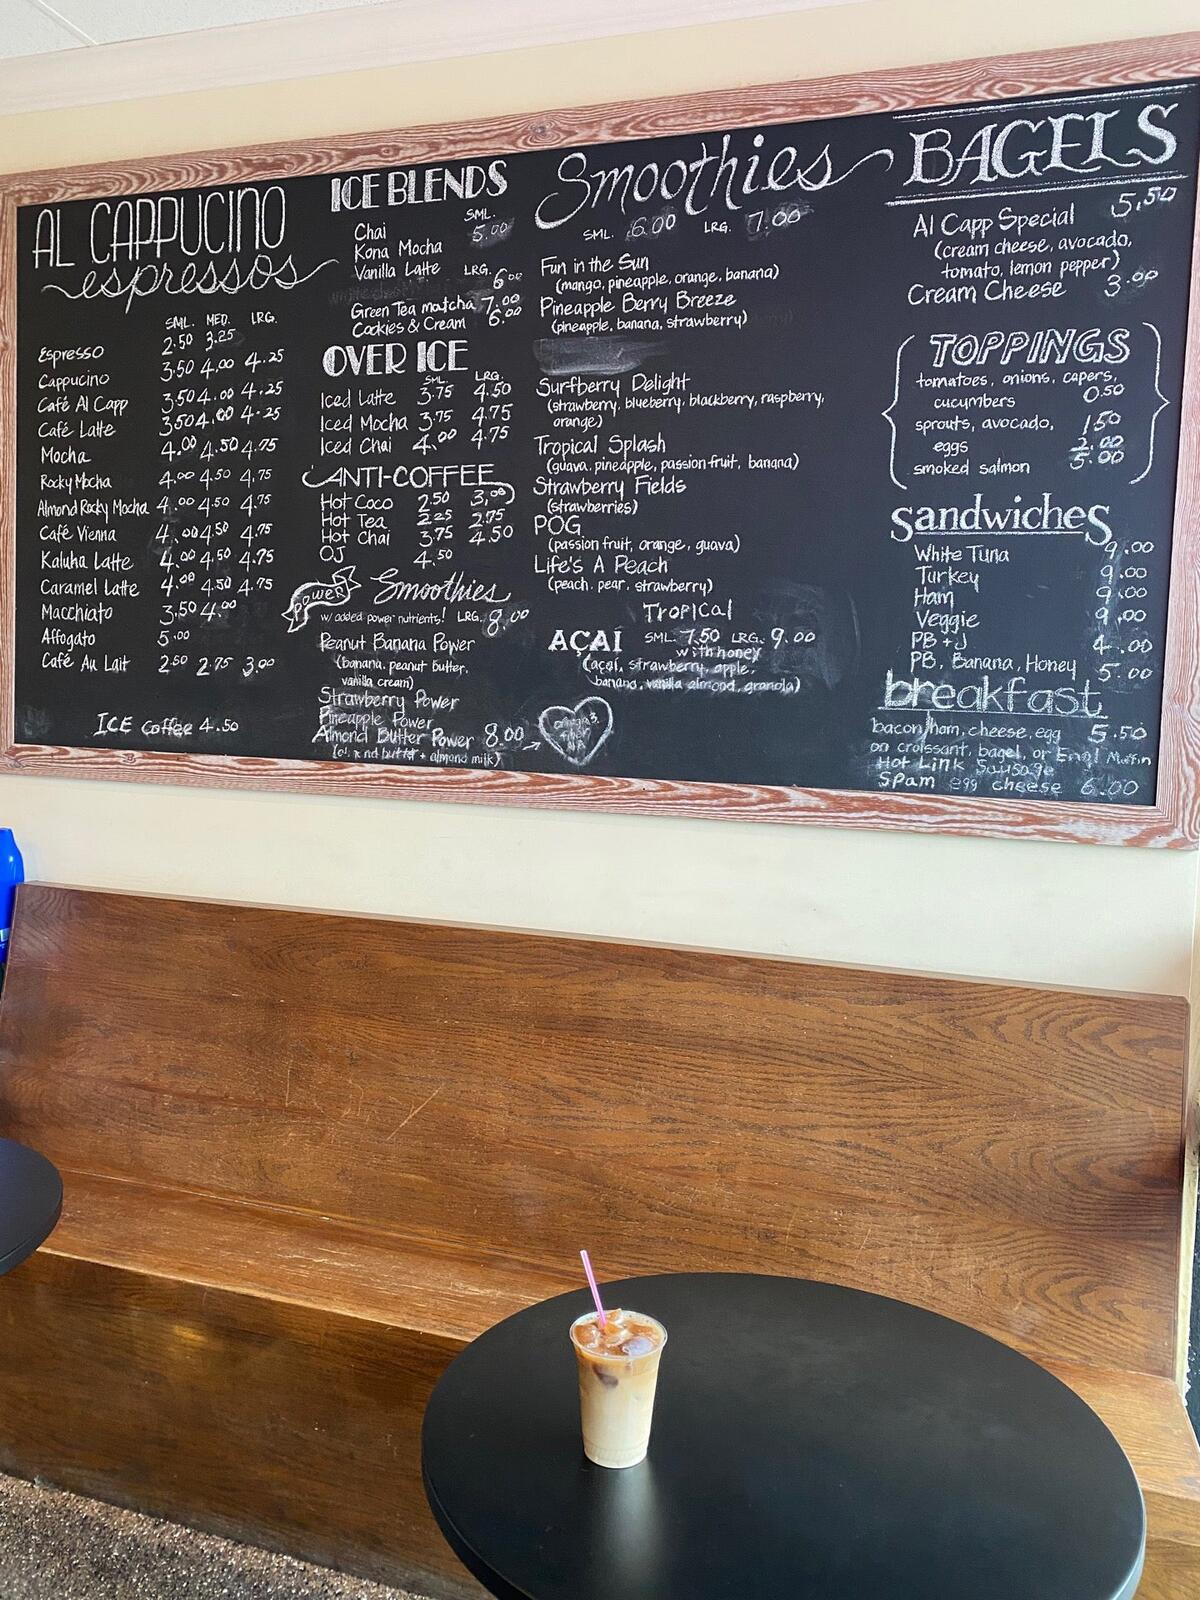 AL CAPPUCINO
espressos
SML. MED. LRG.
Espresso 2.50 3.25
Cappucino 3.50 4.00 4.25
Café Al Capp 3.50 4.00 4.25
Café Latte 3.50 4.00 4.25
Mocha 4.00 4.50 4.75
Rocky Mocha 4.00 4.50 4.75
Almond Rocky Mocha 4.00 4.50 4.75
Café Vienna 4.00 4.50 4.75
Kaluha Latte 4.00 4.50 4.75
Caramel Latte 4.00 4.50 4.75
Macchiato 3.50 4.00
Affogato 5.00
Café Au Lait 2.50 2.75 3.00
ICE Coffee 4.50
ICE BLENDS
SML.
Chai 5.00
Kona Mocha
Vanilla Latte LRG.
6.00
Green Tea matcha 7.00
Cookies & Cream 6.00
OVER ICE
SML. LRG.
Iced Latte 3.75 4.50
Iced Mocha 3.75 4.75
Iced Chai 4.00 4.75
ANTI-COFFEE
Hot Coco 2.50 3.00
Hot Tea 2.25 2.75
Hot Chai 3.75 4.50
OJ 4.50
POWER Smoothies
w/ added power nutrients! LRG. 8.00
Peanut Banana Power
(banana, peanut butter,
vanilla cream)
Strawberry Power
Pineapple Power
Almond Butter Power 8.00
butter + almond milk)
Smoothies
SML. 6.00 LRG. 7.00
Fun in the Sun
(mango, pineapple, orange, banana)
Pineapple Berry Breeze
(pineapple, banana, strawberry)
Surfberry Delight
(strawberry, blueberry, blackberry, raspberry,
orange)
Tropical Splash
(guava, pineapple, passion fruit, banana)
Strawberry Fields
(strawberries)
POG
(passion fruit, orange, guava)
Life's A Peach
(peach, pear, strawberry)
Tropical
AÇAÍ SML. 7.50 LRG. 9.00
with honey
(açaí, strawberry, apple,
banana, vanilla almond, granola)
BAGELS
Al Capp Special 5.50
(cream cheese, avocado,
tomato, lemon pepper)
Cream Cheese 3.00
TOPPINGS
tomatoes, onions, capers,
cucumbers 0.50
sprouts, avocado, 1.50
eggs 2.00
smoked salmon 5.00
sandwiches
White Tuna 9.00
Turkey 9.00
Ham 9.00
Veggie 9.00
PB + J 4.00
PB, Banana, Honey 5.00
breakfast
bacon/ham, cheese, egg 5.50
on croissant, bagel, or Engl Muffin
Hot Link Sausage
Spam egg cheese 6.00